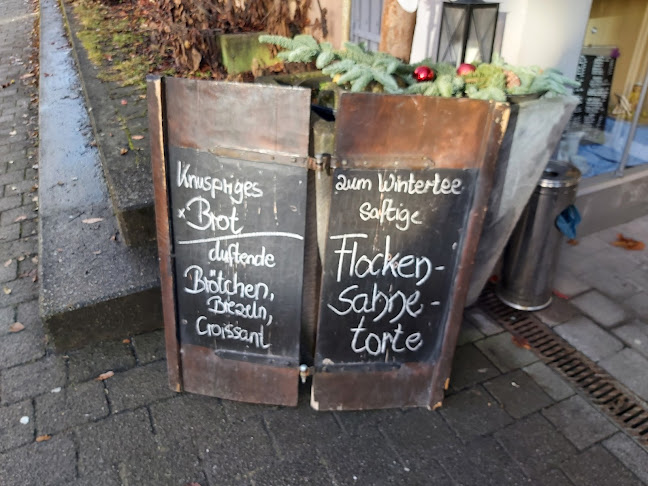 Knuspriges
x Brot
duftende
Brötchen,
Brezeln,
Croissant
zum Wintertee
saftige
Flocken-
sahne-
torte